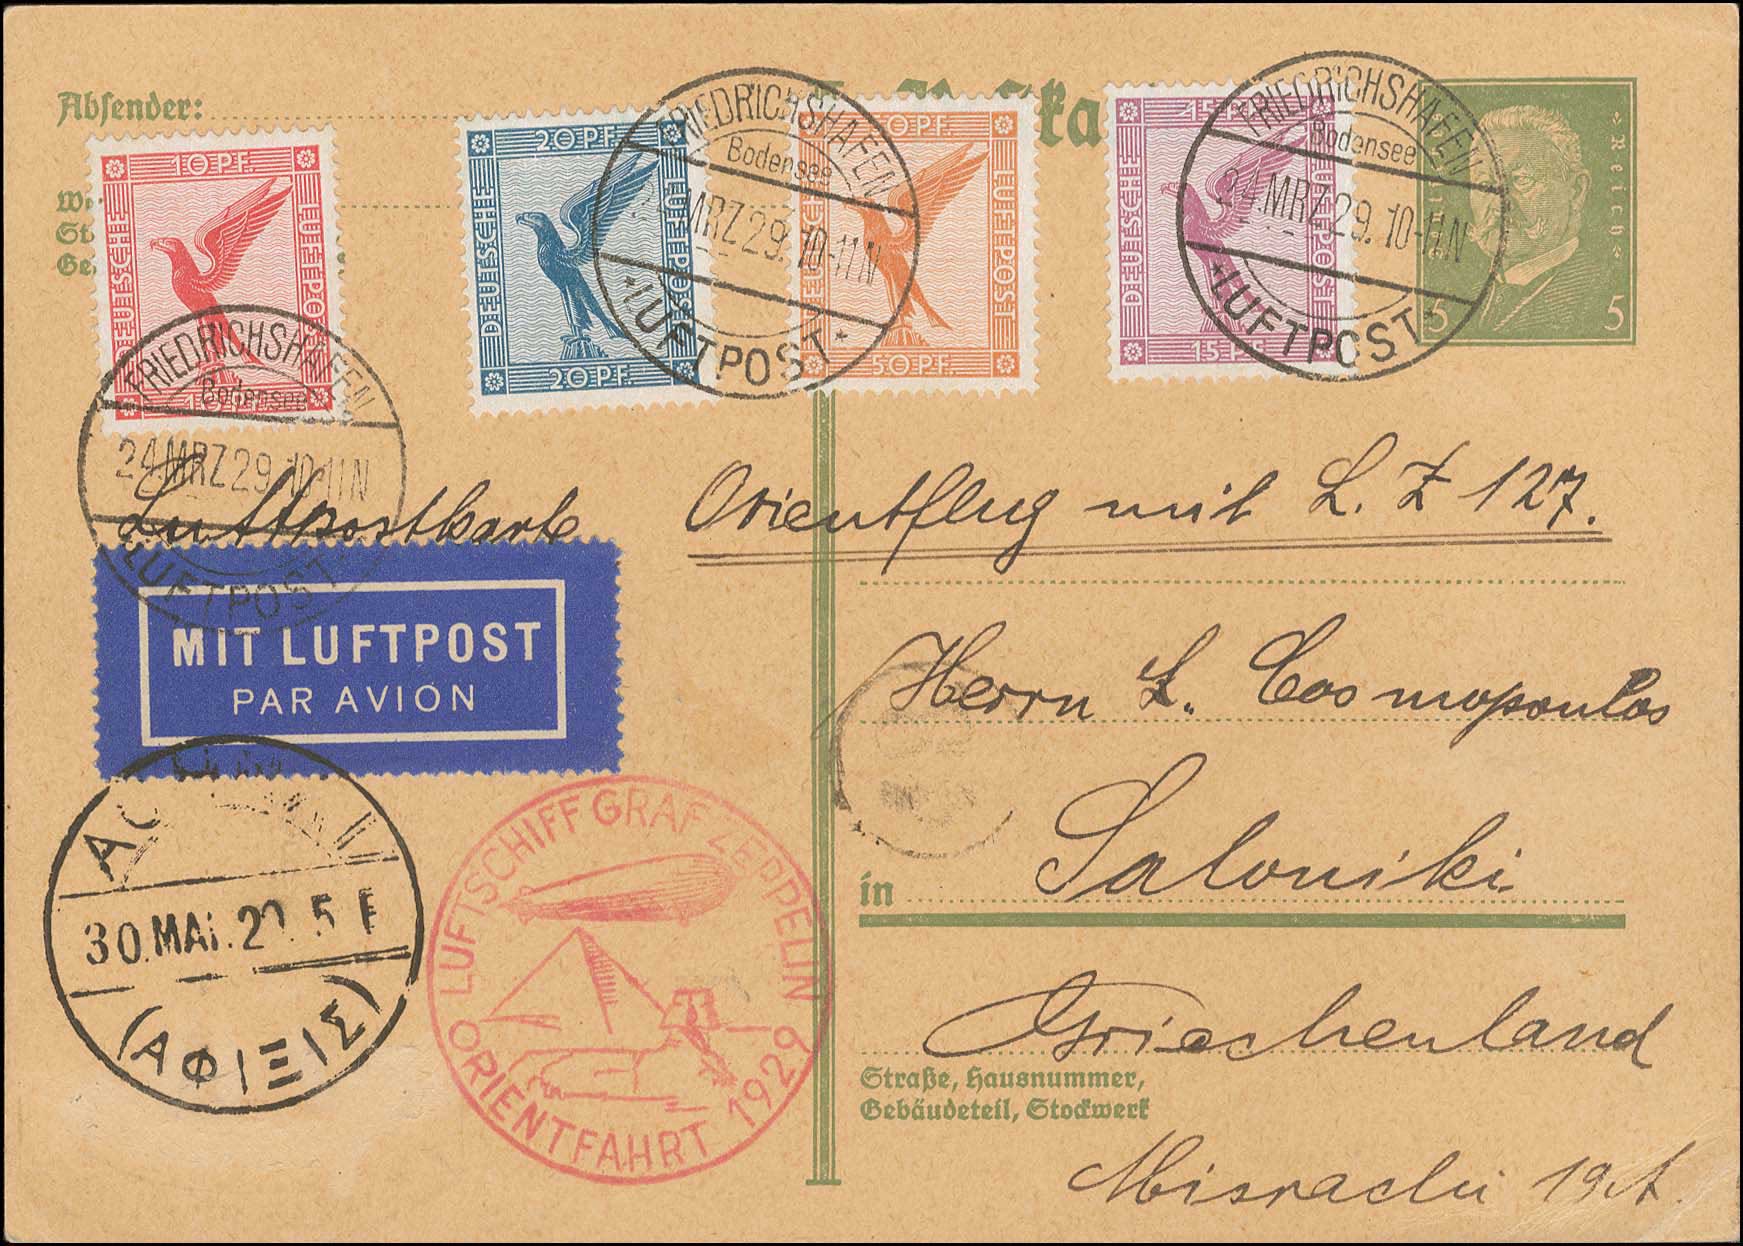 Absender:
10 PF.
DEUTSCHE LUFTPOST
10 PF.
20 PF.
DEUTSCHE LUFTPOST
20 PF.
50 PF.
LUFTPOST
50 PF.
15 PF.
DEUTSCHE LUFTPOST
15 PF.
Reich
5 5
FRIEDRICHSHAFEN
Bodensee
24.MRZ.29.10-11N
LUFTPOST
FRIEDRICHSHAFEN
Bodensee
MRZ.29.10-11N
*LUFTPOST*
FRIEDRICHSHAFEN
Bodensee
24.MRZ.29.10-11N
*LUFTPOST*
Luftpostkarte
Orientflug mit L. Z 127.
MIT LUFTPOST
PAR AVION
Herrn L. Cosmopoulos
in Saloniki
Griechenland
Straße, Hausnummer,
Gebäudeteil, Stockwerk
Misrachi 19A.
30.MAI.
(ΑΦΙΞΙΣ)
LUFTSCHIFF GRAF ZEPPELIN
ORIENTFAHRT 1929